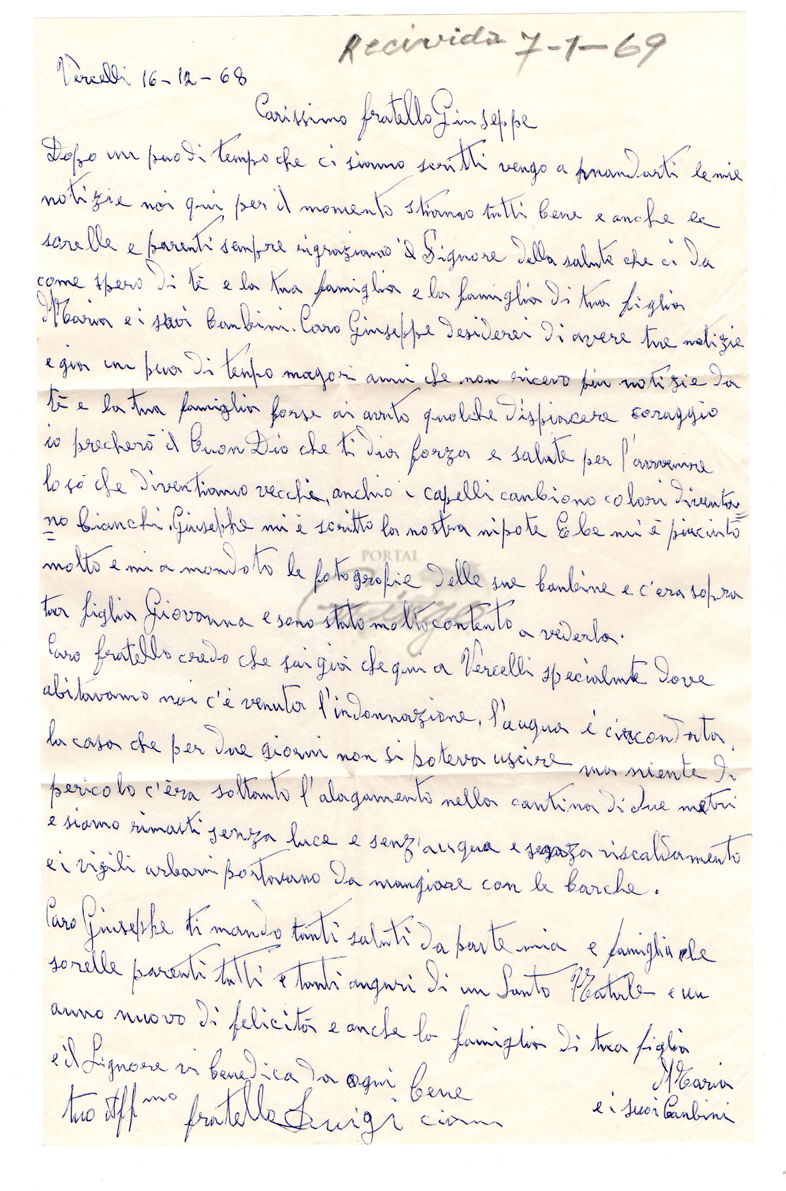 Recivida 7-1-69
Vercelli 16-12-68
Carissimo fratello Giuseppe
Dopo un puo di tempo che ci siamo scritti vengo a mandarti le mie
notizie noi qui per il momento stiamo tutti bene e anche le
sorelle e parenti sempre ingraziamo il Signore della salute che ci da
come spero di tè e la tua famiglia e la famiglia di tua figlia
Maria e i suoi banbini. Caro Giuseppe desiderei di avere tue notizie
e gia un puo di tenpo magori anni che non ricevo piu notizie da
tè e la tua famiglia forse ai avuto qualche dispiacere coraggio
io precherò il buon Dio che ti dia forza e salute per l'avvenire
lo sò che diventiamo vecchi, anchio i capelli canbiono colori diventa=
no bianchi. Giuseppe mi è scritto la nostra nipote Ebe mi è piaciuto
molto e mi a mandato le fotografie delle sue banbine e c'era sopra
PORTAL
tua figlia Giovanna e sono stato molto contento a vederla.
Caro fratello credo che sai già che qui a Vercelli specialmente dove
abitavamo noi c'è venuta l'indonnazione, l'auqua é circondata
la casa che per due giorni non si poteva uscire ma niente di
pericolo c'èra soltanto l'alagamento nella cantina di due metri
e siamo rimasti senza luce e senz'auqua e senza riscaldamento
e i vigili urbani portavano da mangiare con le barche.
Caro Giuseppe ti mando tanti saluti da parte mia e famiglia ele
sorelle parenti tutti e tanti auguri di un Santo Natale e un
anno nuovo di felicità e anche la famiglia di tua figlia
Maria
e i suoi banbini
e il Signore vi benedica da ogni bene
tuo Aff mo fratello Luigi ciau